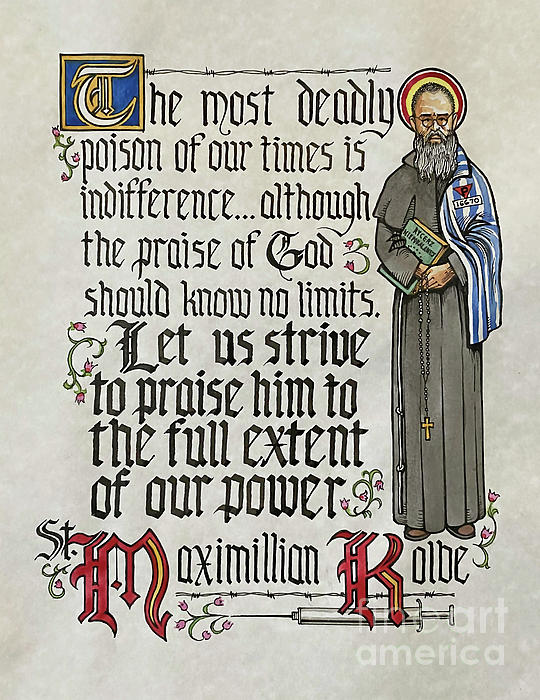 The most deadly
poison of our times is
indifference... although
the praise of God
should know no limits.
Let us strive
to praise him to
the full extent
of our power
St. Maximillian Kolbe
P
16670
fine art
america